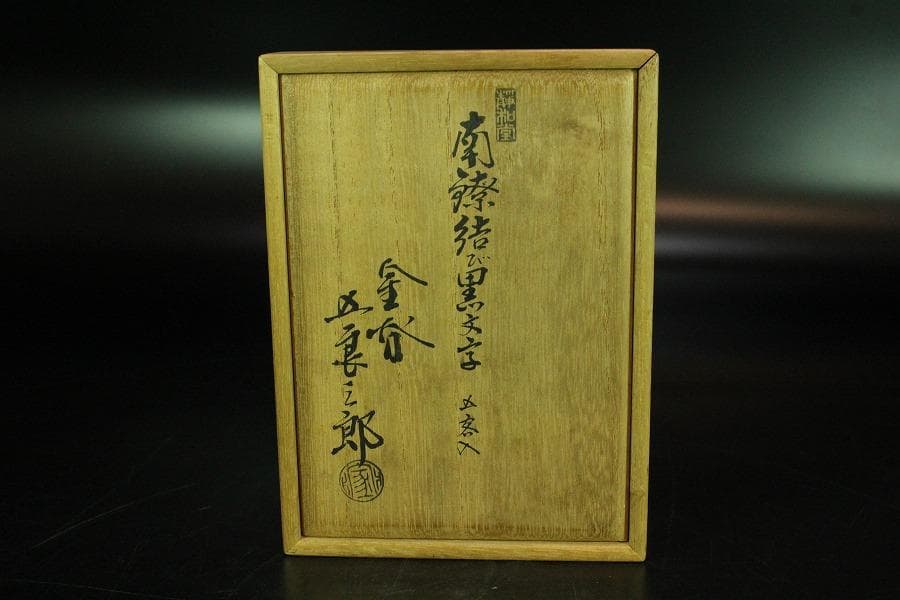 南鐐結び黒文字 五客入
金谷
五良三郎